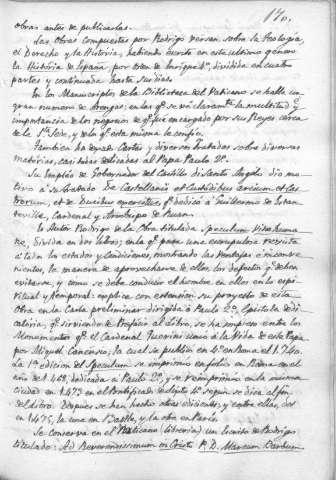 170.
obras antes de publicarlas.
Las Obras compuestas por Rodrigo versan sobre la Teología,
el Derecho y la Historia, habiendo escrito en este ultimo género
la Historia de España por orden de Enrique 4º, dividida en cuatro
partes y continuada hasta sus dias.
En los Manuscritos de la Biblioteca del Vaticano se halla un
gran numero de Arengas, en las q.e se vé claramte la multitud é
importancia de los negocios de q.e fué encargado por sus Reyes cerca
de la S.ta Sede, y de los q.e esta misma le confió.
Tambien ha dexado Cartas y diversos Tratados sobre diversas
materias, casi todas dedicadas al Papa Paulo 2º.
Su Empleo de Gobernador del Castillo de Santo Angelo dió mo-
tivo a su tratado De Castellanis et Custodibus arcium et Cas-
trorum, et de Ducibus exercitus, q.e dedicó a Guillermo de Estau-
teville, Cardenal y Arzobispo de Ruan.
Es Autor Rodrigo de la Obra titulada Speculum Vitæ huma-
næ, divida en dos libros; en la q.e pasa una escrupulosa revista
a todos los estados y condiciones, mostrando las ventajas é inconve-
nientes, la manera de aprovecharse de ellos, los defectos q.e deben
evitarse, y como se debe conducir el hombre en ellos en lo espi-
ritual y temporal: explica con extension su proyecto de esta
Obra en la Carta preliminar dirigida á Paulo 2º, Epistola de di-
catoria, q.e sirviendo de Prefacio al Libro, se ha impreso entre los
Monumentos q.e el Cardenal Querini unió á la Vida de este Papa
por Miguel Canensio; la cual se publicó en 4º en Roma el 1740.
La 1ª edicion del Speculum se imprimió en folio en Roma en el
año de 1468, dedicada a Paulo 2º, y se reimprimió en la misma
ciudad en 1473 en el Pontificado de Sixto 4º segun se dice al fin
del Libro. Despues se han hecho otras ediciones, y entre ellas, dos
en 1475, la una en Basilea, y la otra en Paris.
Se conserva en el Vaticano (libreria) un Escrito de Rodrigo
titulado: Ad Reverendissimum in Cristo P. D. Marcum Barbum